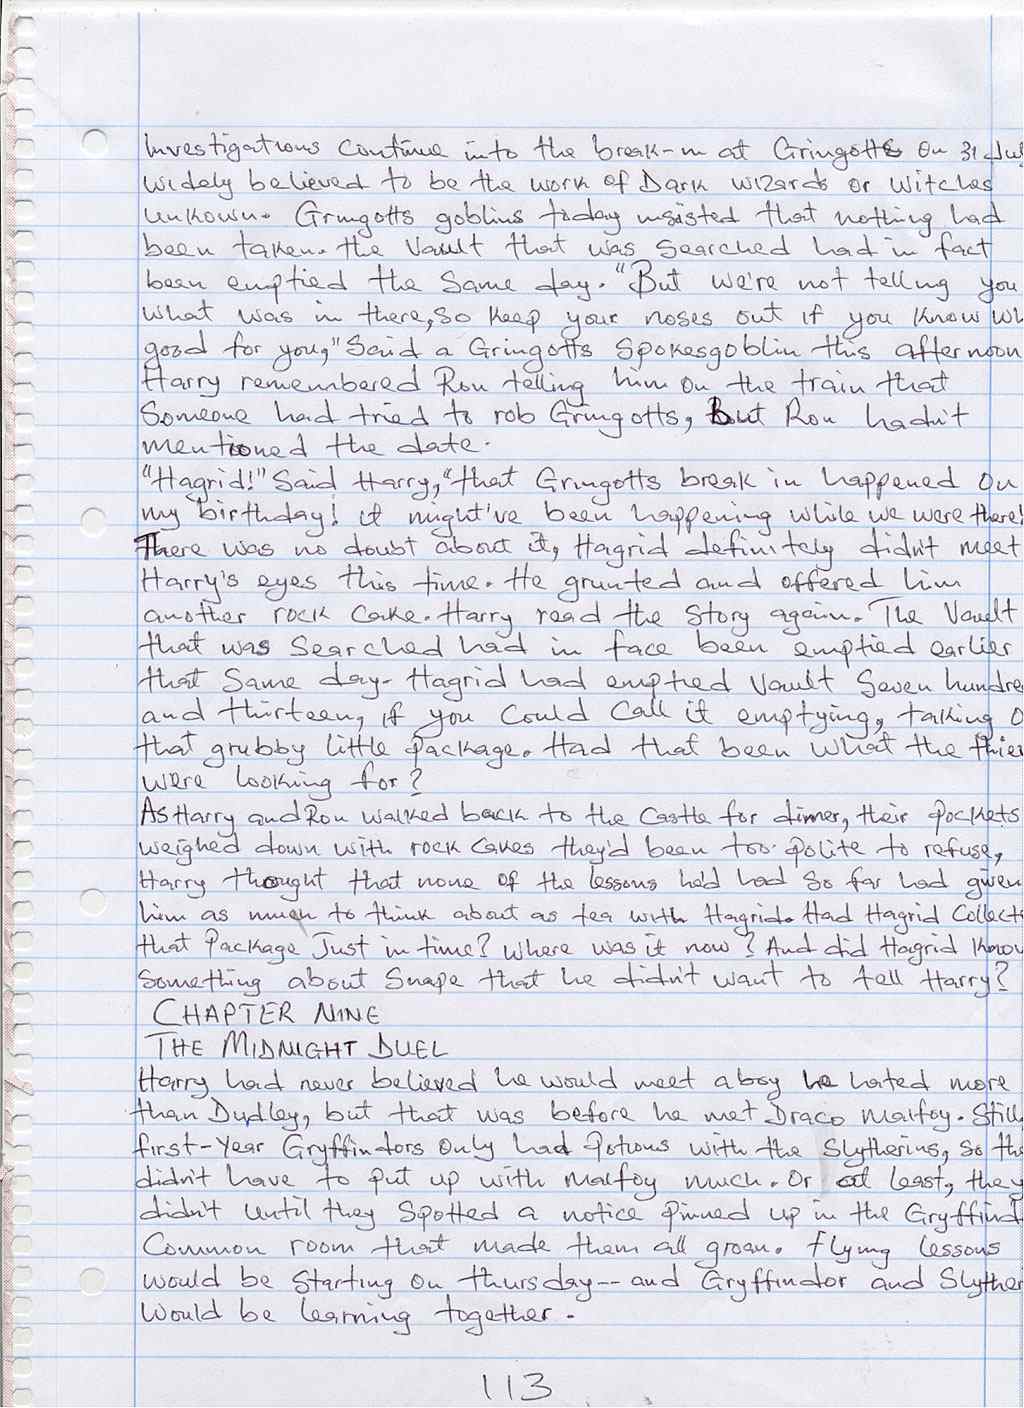 Investigations continue into the break-in at Gringotts on 31 Jul
widely believed to be the work of Dark wizards or witches
unkown. Gringotts goblins today insisted that nothing had
been taken. the Vault that was searched had in fact
been emptied the same day. "But we're not telling you
what was in there, so keep your noses out if you know wh
good for you," Said a Gringotts Spokesgoblin this afternoon
Harry remembered Ron telling him on the train that
Someone had tried to rob Gringotts, but Ron hadn't
mentioned the date.
"Hagrid!" Said Harry, "that Gringotts break in happened on
my birthday! it might've been happening while we were there!
There was no doubt about it, Hagrid definitely didn't meet
Harry's eyes this time. He grunted and offered him
another rock cake. Harry read the story again. The Vault
that was searched had in face been emptied earlier
that same day- Hagrid had emptied Vault Seven hundre
and thirteen, if you could call it emptying, taking o
that grubby little package. Had that been what the thiev
were looking for?
As Harry and Ron walked back to the Castle for dinner, their pockets
weighed down with rock cakes they'd been too polite to refuse,
Harry thought that none of the lessons he'd had so far had given
him as much to think about as tea with Hagrid. Had Hagrid Collect
that Package Just in time? Where was it now? And did Hagrid know
something about Snape that he didn't want to tell Harry?
CHAPTER NINE
THE MIDNIGHT DUEL
Harry had never believed he would meet a boy he hated more
than Dudley, but that was before he met Draco malfoy. Still
first-Year Gryffindors only had potions with the Slytherins, so the
didn't have to put up with malfoy much. Or at least, they
didn't until they spotted a notice pinned up in the Gryffind
Common room that made them all groan. flying lessons
would be starting on thursday-- and Gryffindor and Slyther
would be learning together.
113